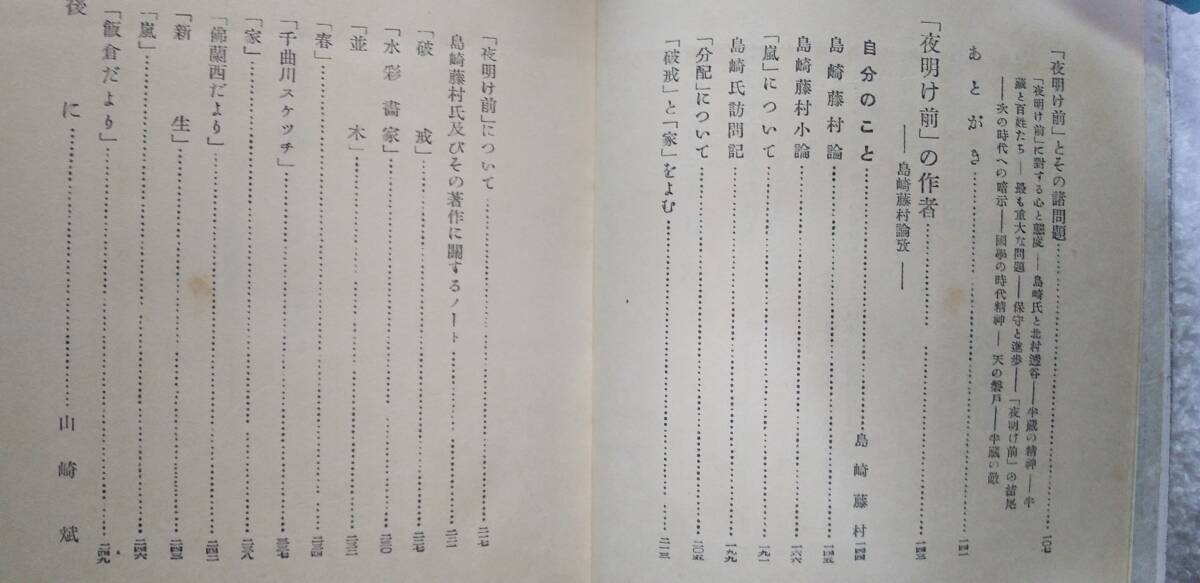 「夜明け前」とその諸問題……一〇七
「夜明け前」に對する心と態度――島崎氏と北村透谷――半蔵の精神――半
蔵と百姓たち――最も重大な問題――保守と進歩――「夜明け前」の諸尾
――次の時代への暗示――國學の時代精神――天の磐戸――半蔵の敵
あとがき……一四一
「夜明け前」の作者……一四三
――島崎藤村論攷――
自分のこと 島崎藤村 一四四
島崎藤村論……一四五
島崎藤村小論……一八六
「嵐」について……一九一
島崎氏訪問記……一九九
「分配」について……二〇五
「破戒」と「家」をよむ……二一三
「夜明け前」について……二一七
島崎藤村氏及びその著作に關するノート……二二一
「破戒」……二二七
「水彩畵家」……二三〇
「並木」……二三二
「春」……二三四
「千曲川スケッチ」……二三七
「家」……二三八
「佛蘭西だより」……二四二
「新生」……二四三
「嵐」……二四六
「飯倉だより」……二四九
後に……山崎斌